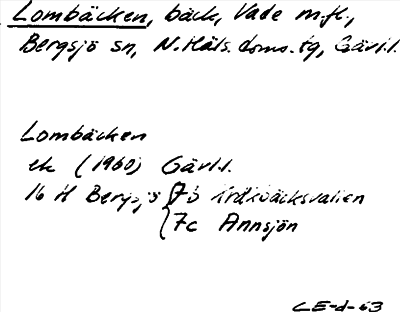 Lombäcken, bäck, Vade m.fl.,
Bergsjö sn, N. Häls. doms. tg, Gävl.l.
Lombäcken
ek (1960) Gävl.l.
16 H Bergsjö 7b Kråkbäcksvallen
7c Annsjön
CE-d-63